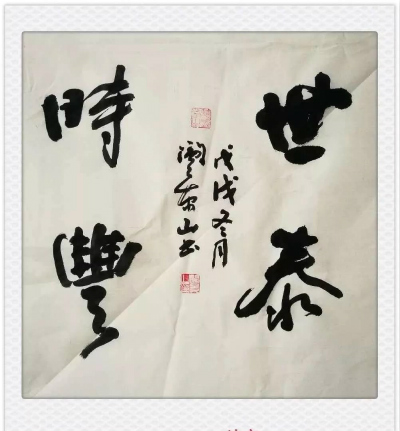 世泰
時豐
戊戌冬月
東山书